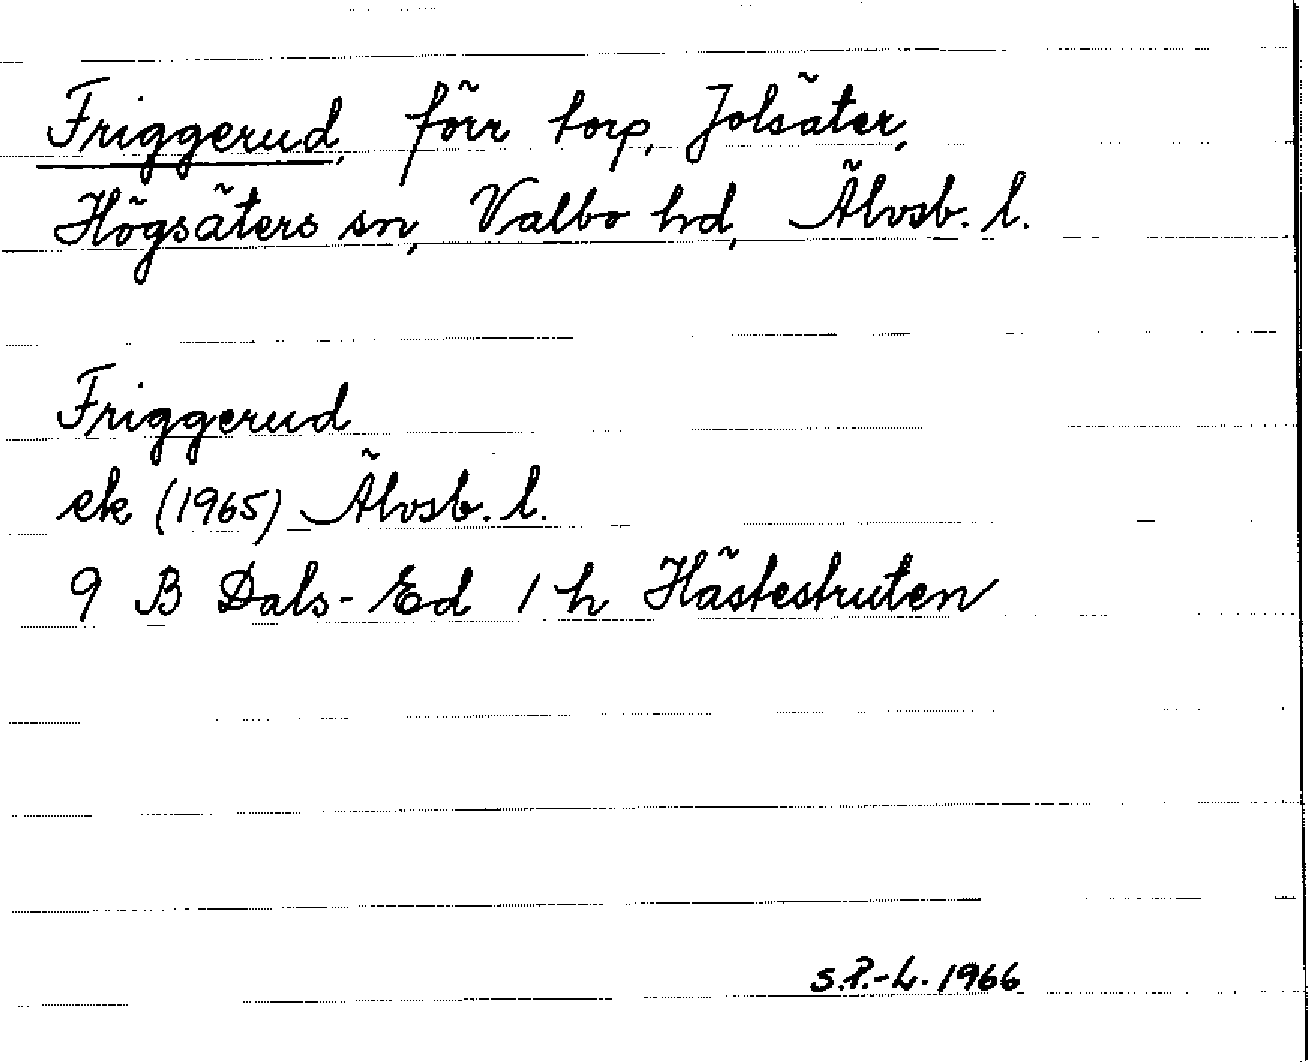 Friggerud, förr torp, Jolsäter,
Högsäters sn, Valbo hd, Älvsb. l.
Friggerud
ek (1965) Älvsb. l.
9 B Dals-Ed 1 h Hästestruten
S.P.-L. 1966